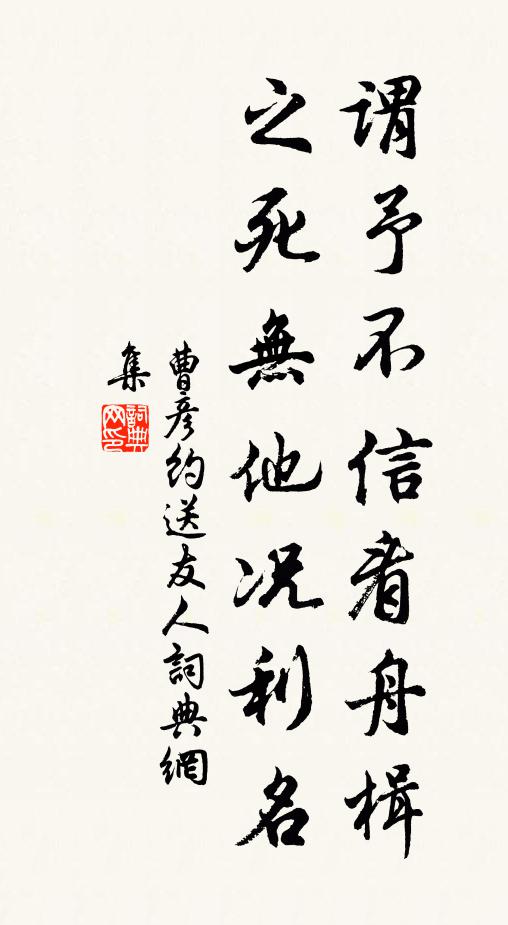 謂予不信者舟楫
之死無他况利名
曹彦約送友人詞典網
集
詞典网印